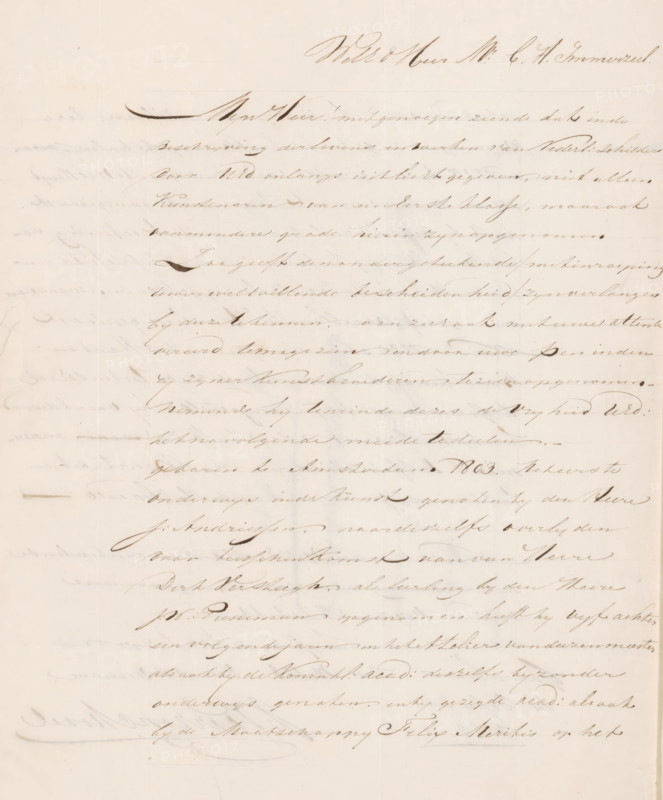 WelEd Heer Mr C. H. Immerzeel.
Myn Heer! met genoegen ziende dat in de
Beschryving der levens en werken van Nederl: schilders
door UEd onlangs in het licht gegeven, niet alleen
Kunstenaren van de Eerste klasse, maar ook
van mindere grade hierin zyn opgenomen
Zoo geeft den ondergetekende / met inroeping
uwer welwillende bescheidenheid / zyn verlangen
by deze te kennen, om zich ook met uwe attentie
vereerd te mogen zien, en door uwe pen in den
ry zyner Kunstbroederen te zien opgenomen.
Nemende hy ten einde dezes de vryheid UEd:
het navolgende mede te deelen.
geboren te Amsterdam 1803. te eerste
onderwys in de Kunst genoten by den Heere
J: Andriessen, na deszelfs overlyden
door tusschenkomst van den Heere
Dirk Versteegh, als leerling by den Heere
J W: Pieneman opgenomen heeft hy vyf achter
een volgende jaren on het Atelier van dezen meester
alsook by de Koninkl: acad: deszelfs byzonder
onderwys genoten. en by gezegde acad: alsook
by de Maatschappy Felix Meritis op het